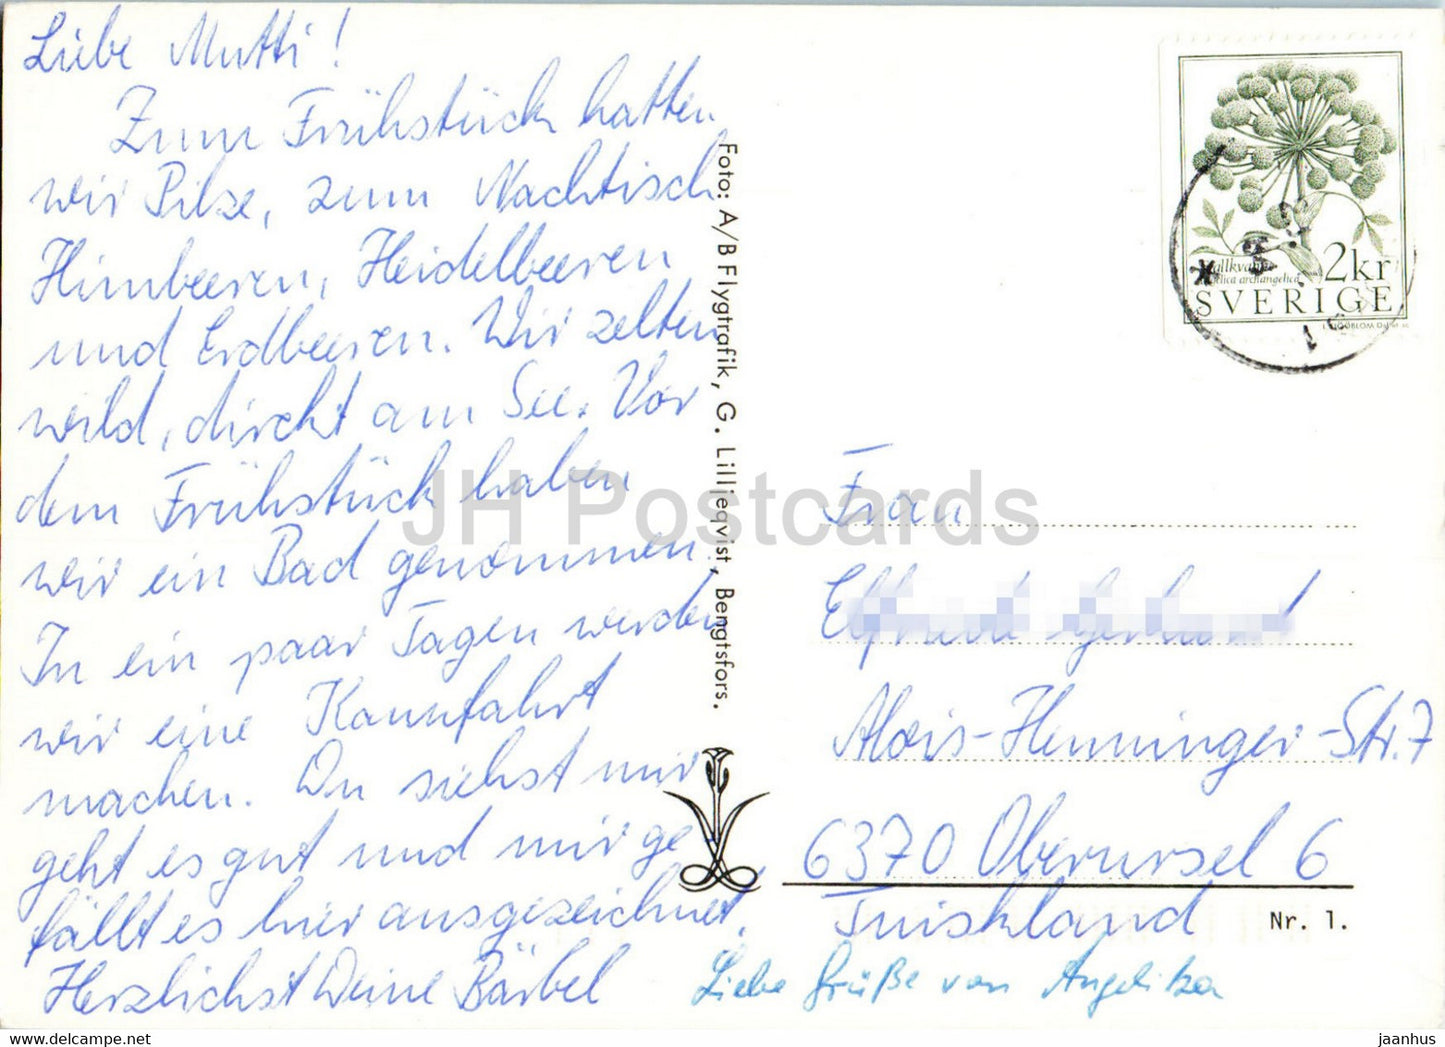 Liebe Mutti!
Zum Frühstück hatten
wir Pilze, zum Nachtisch
Himbeeren, Heidelbeeren
und Erdbeeren. Wir zelten
wild, direkt am See. Vor
dem Frühstück haben
wir ein Bad genommen.
In ein paar Tagen werden
wir eine Kanufahrt
machen. Du siehst mir
geht es gut und mir ge-
fällt es hier ausgezeichnet.
Herzlichst Deine Bärbel
Liebe Grüße von Angelika
Foto: A/B Flygtrafik, G. Lilljeqvist, Bengtsfors.
2kr
archangelica
SVERIGE
Frau
Alois-Henninger-Str. 7
6370 Oberursel 6
Tyskland
Nr. 1.
JH Postcards
www.delcampe.net
jaanhus